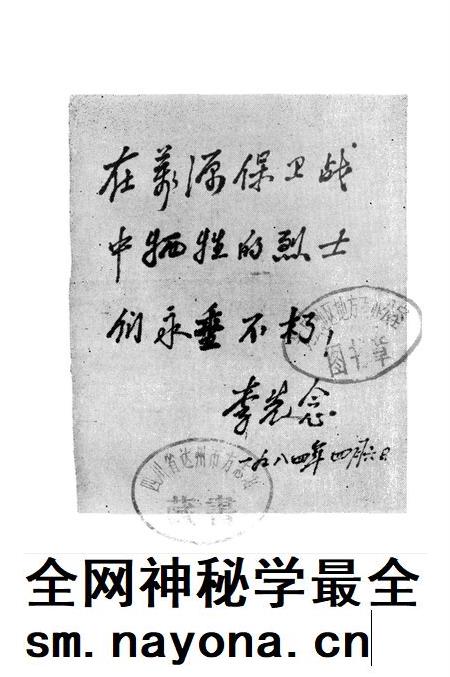 在萬源保卫战
中牺牲的烈士
们永垂不朽！
李先念
一九八四年四月六日
四川省达州市方志办
藏書
图书章
全网神秘学最全
sm.nayona.cn